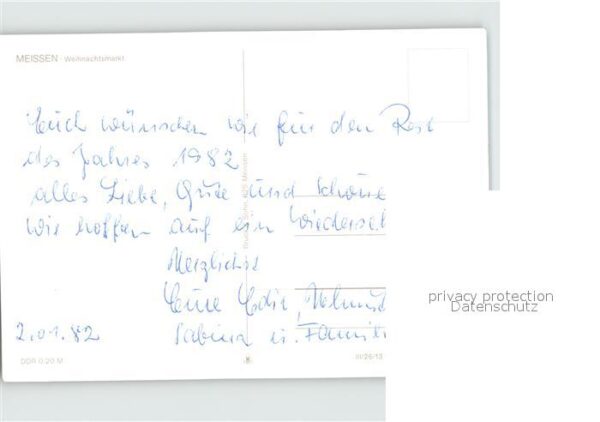 MEISSEN Weihnachtsmarkt
Euch wünschen wir für den Rest
des Jahres 1982
alles Liebe, Gute und Schöne
wir hoffen auf ein Wiederseh
Herzlichst
Eure Edie, Helmut
2.01.82 Sabina u. Famili
DDR 0,20 M III/26/13
privacy protection
Datenschutz